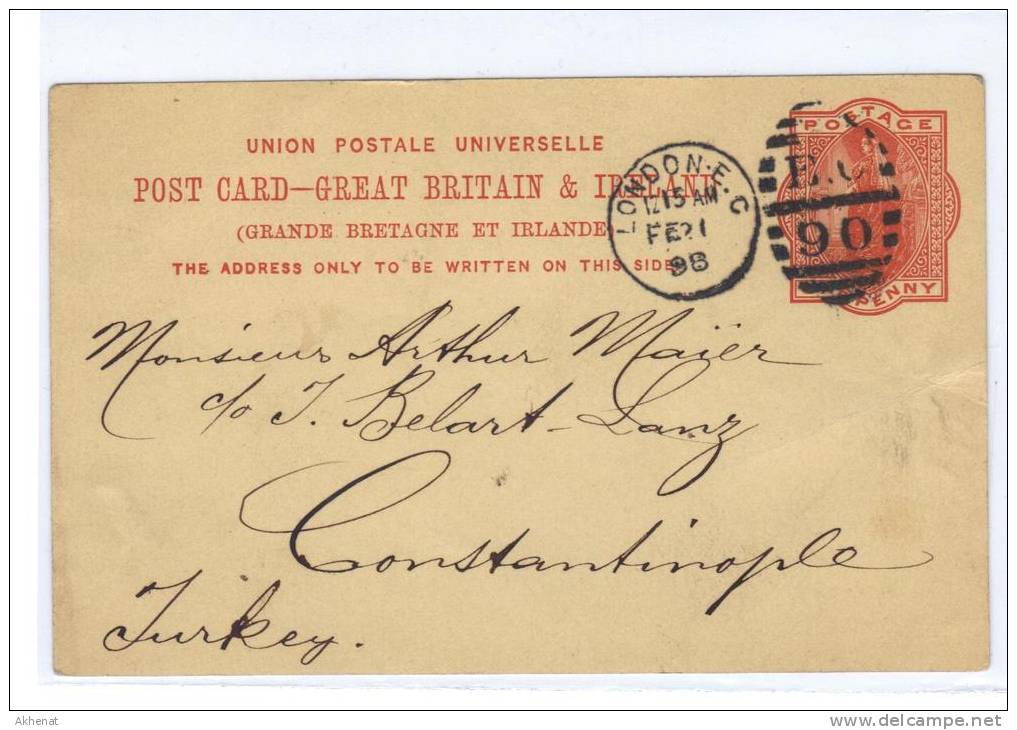 UNION POSTALE UNIVERSELLE
POST CARD—GREAT BRITAIN & IRELAND
(GRANDE BRETAGNE ET IRLANDE)
THE ADDRESS ONLY TO BE WRITTEN ON THIS SIDE.
LONDON·E.C
12 15 AM
FE 21
98
E.C
90
POSTAGE
PENNY
Monsieur Arthur Maïer
c/o J. Belart-Lanz
Constantinople
Turkey.
Akhenat
www.delcampe.net